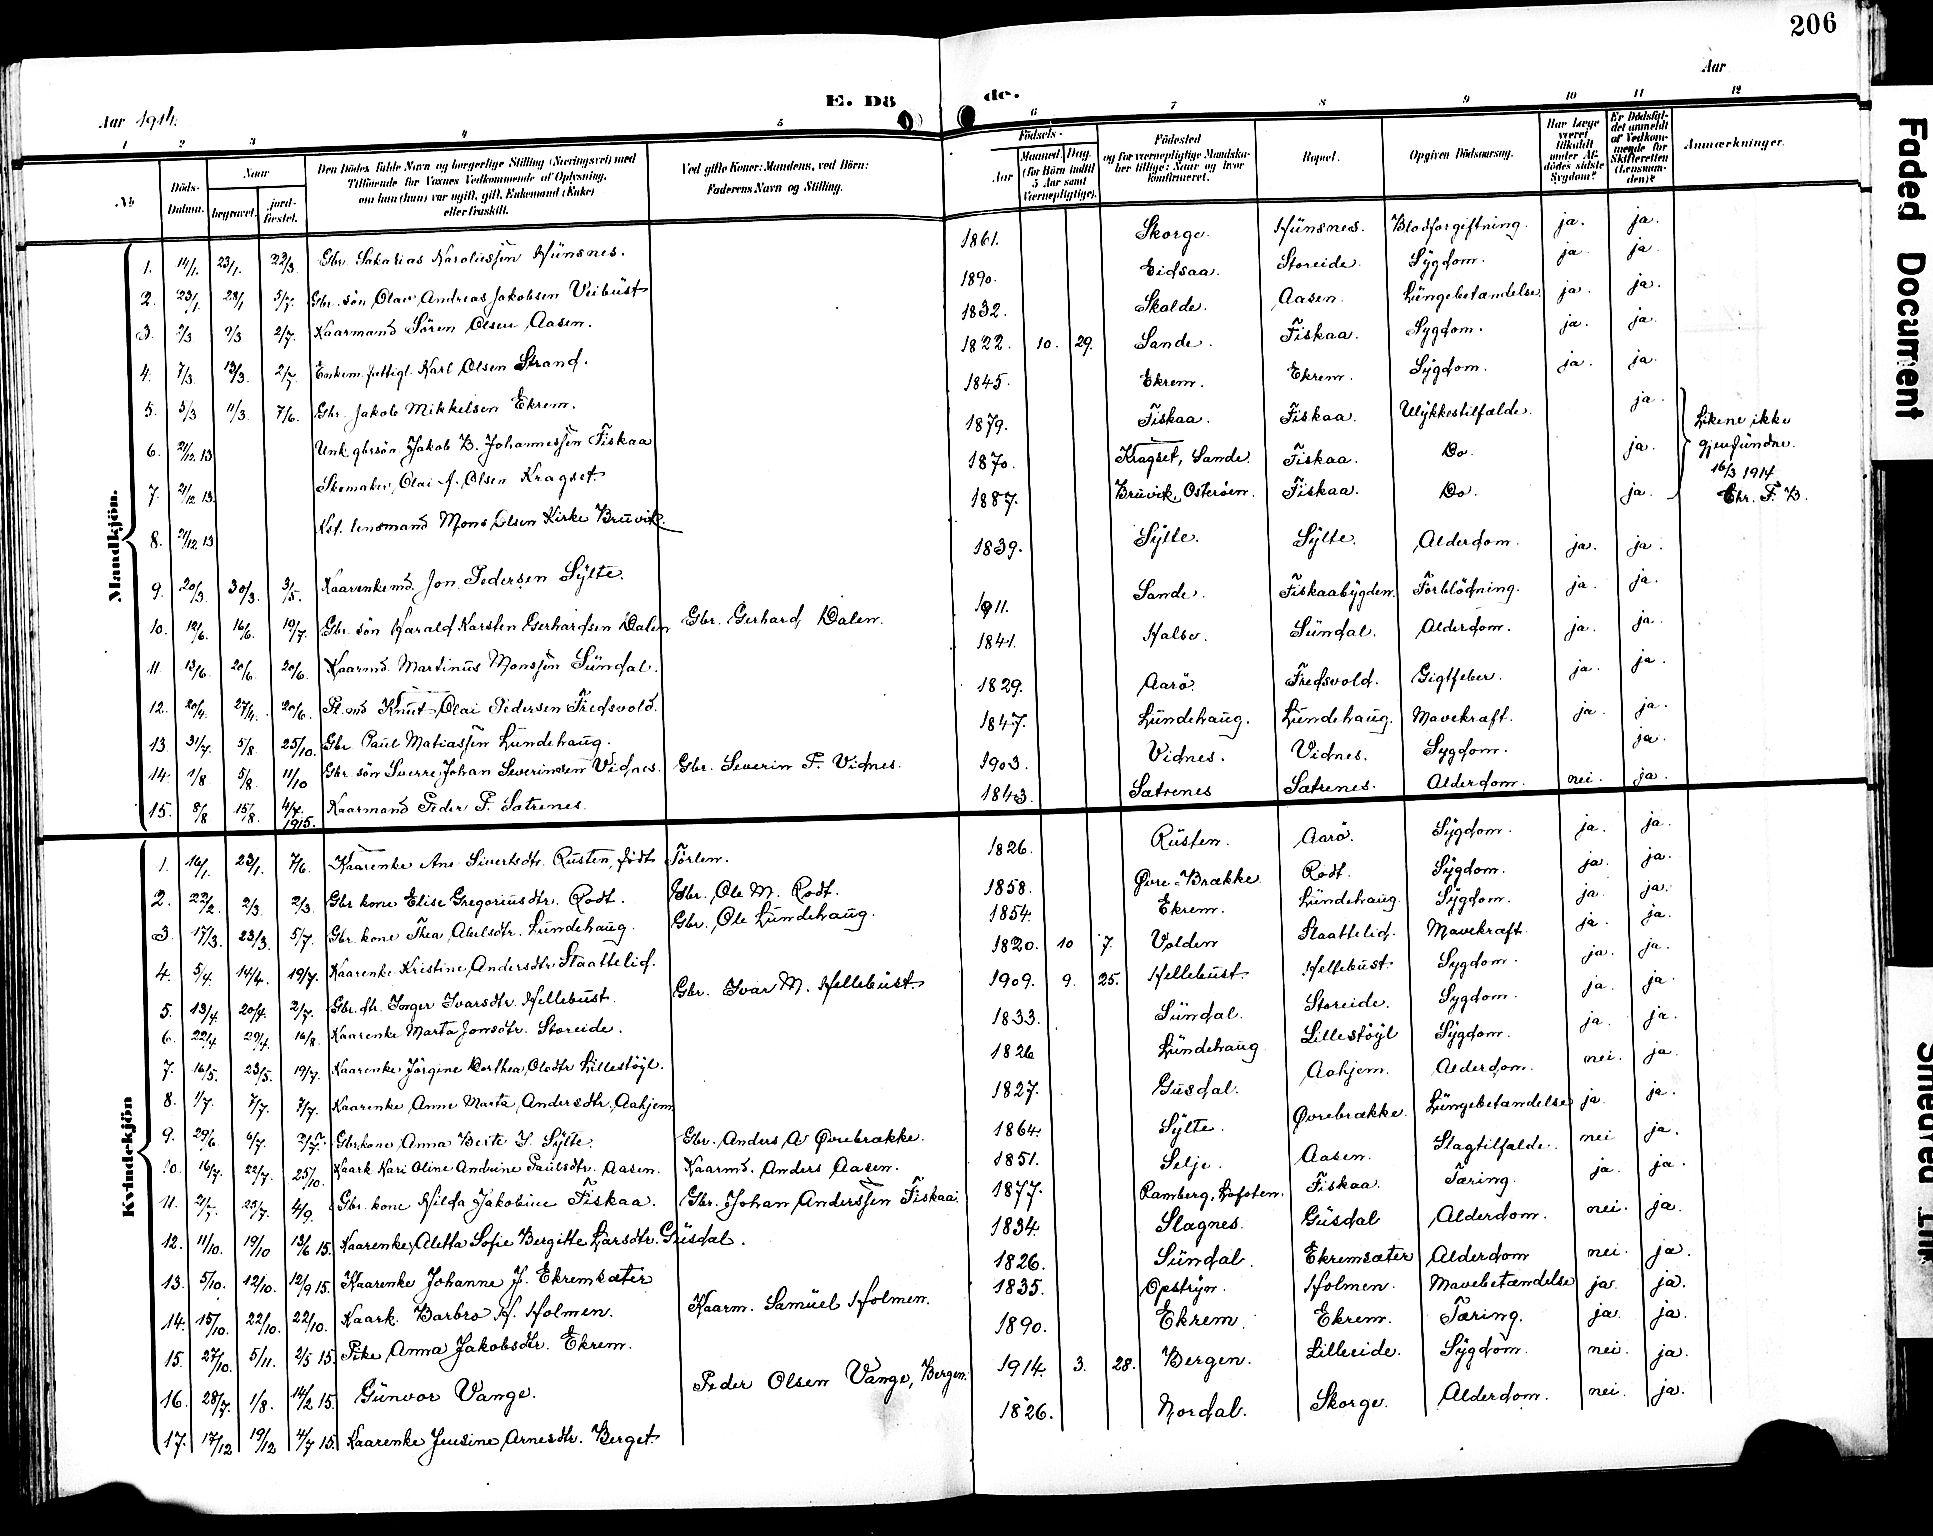 206
Aar 1914. E. Dö de. Aar
1 2 3 4 5 6 7 8 9 10 11 12
No. Döds-Datum. Naar begravet. jordfæstet. Den Dödes fulde Navn og borgerlige Stilling (Næringsvei) med Tilföiende for Voxnes Vedkommende af Oplysning, om han (hun) var ugift, gift, Enkemand (Enke) eller fraskilt. Ved gifte Koner: Mandens, ved Börn: Faderens Navn og Stilling. Födsels- Aar Maaned. Dag. (for Börn indtil 5 Aar samt Værnepligtige). Födested og for værnepligtige Mandskaber tillige: Naar og hvor konfirmeret. Bopæl. Opgiven Dödsaarsag. Har Læge været tilkaldt under Afdödes sidste Sygdom? Er Dödsfaldet anmeldt af Vedkommende for Skifteretten (Lensmanden)? Anmærkninger.
Mandkjön.
1. 14/1. 23/1. 22/3. Gbr. Sakarias Karoliussen Hünsnes. 1861. Skorge. Hünsnes. Blodforgiftning. ja. ja.
2. 23/1. 28/1 5/7. Gbr. sön Olav Andreas Jakobsen Veibüst 1890. Eidsaa. Storeide. Sÿgdom. ja ja.
3. 2/3 9/3 2/7. Kaarmand Sören Olsen Aasen. 1832. Skolde. Aasen. Lüngebetændelse. ja. ja.
4. 7/3. 13/3. 2/7. Enkem. fattigl. Karl Olsen Strand. 1822. 10. 29. Sande. Fiskaa. Sygdom. ja. ja.
5. 5/3 11/3. 7/6. Gbr. Jakob Mikkelsen Ekrem. 1845. Ekrem. Ekrem. Sÿgdom. ja. ja.
6. 21/12. 13 Unk. gbrsön Jakob B. Johannessen Fiskaa 1879. Fiskaa. Fiskaa. Ulÿkkestilfælde. ja. Likene ikke gjenfündne. 16/3 1914 Chr. F. B.
7. 21/12 13. Skomaker Olai A. Olsen Kragset. 1870. Kragset, Sande. Fiskaa. Do. ja.
8. 21/12 13 Kst. lensmand Mons Olsen Kirke Brüvik. 1887. Brüvik, Osteröen. Fiskaa. Do. ja.
9. 20/3. 30/3. 3/5. Kaarenkemd. Jon Pedersen Sÿlte. 1839. Sÿlte. Sÿlte. Alderdom. ja. ja.
10. 12/6. 16/6. 19/7. Gbr. sön Harald Karsten Gerhardsen Dalen Gbr. Gerhard Dalen. 1911. Sande. Fiskaabÿgden. Forblödning. ja. ja.
11 13/6. 20/6. 20/6. Kaarmd. Martinus Monssen Sündal. 1841. Halse. Sündal. Alderdom. ja. ja.
12. 20/4. 27/4. 20/6. Pl.md Knut Olai Pedersen Fredsvold. 1829. Aarö. Fredsvold. Gigtfeber. ja. ja.
13. 31/7. 5/8. 25/10. Gbr Paul Matiassen Lündehaug. 1847. Lündehaug. Lündehaug. Mavekræft. ja. ja.
14. 1/8 5/8. 11/10 Gbr. sön Sverre Johan Severinsen Vidnes. Gbr. Severin P. Vidnes. 1903. Vidnes. Vidnes. Sygdom. ja.
15. 8/8 15/8. 4/7. 1915. Kaarmand Peder P. Sætrenes. 1843. Sætrenes Sætrenes. Alderdom. nei. ja.
Kvindekjön
1. 16/1. 23/1. 7/6. Kaarenke Ane Sivertsdtr. Rusten, født Förlem. 1826. Rüsten. Aarö. Sÿgdom. ja. ja.
2. 22/2. 2/3. 2/3. Gbr kone Elise Gregoriusdtr. Rodt. Gbr. Ole M. Rodt. 1858. Øvre-Brække. Rodt. Sÿgdom. ja. ja.
3. 17/3. 23/3. 5/7. Gbr. kone Thea Abelsdtr. Lundehaug. Gbr. Ole Lündehaug. 1854. Ekrem. Lündehaug. Sÿgdom. ja. ja.
4. 5/4. 14/4. 19/7. Kaarenke Kristine Andersdtr. Staattelid. 1820. 10 7. Volden Staattelid. Mavekræft. ja. ja.
5. 13/4. 20/4. 2/7. Gbr. dtr. Inger Ivarsdtr. Hellebüst. Gbr. Ivar M. Hellebüst. 1909. 9. 25. Hellebüst. Hellebüst. Sygdom. ja. ja.
6. 22/4 29/4. 16/8. Kaarenke Marta Jonsdtr. Storeide. 1833. Sündal. Storeide. Sygdom. ja. ja.
7. 16/5. 23/5. 19/7. Kaarenke Jörgine Dorthea Olsdtr Lillestöÿl. 1826 Lündehaug. Lillestöÿl Sÿgdom. ja. ja.
8. 1/7. 7/7. 7/7. Kaarenke Anne Marta Andersdtr. Aahjem. 1827. Güsdal. Aahjem. Alderdom. nei. ja.
9. 29/6. 6/7. Gbrkone Anna Berte J. Sÿlte. Gbr. Anders A Øvrebrække. 1864. Sÿlte. Øvrebrække. Lüngebetændelse ja. ja.
10. 16/7. 22/7. 25/10. Kaark Kari Oline Andrine Paulsdtr. Aasen. Kaarmd. Anders Aasen. 1851. Selje. Aasen. Slagtilfælde. nei ja.
11. 21/7. 25/7. 4/9. Gbr. kone Hilda Jakobine Fiskaa. Gbr. Johan Anderssen Fiskaa. 1877. Ramberg, Lofoten. Fiskaa. Tæring. ja. ja.
12. 11/10. 19/10 13/6 15. Kaarenke Aletta Sofie Bergitte Larsdtr. Güsdal. 1834. Slagnes. Güsdal Alderdom. nei. ja.
13. 5/10. 12/10. 12/9 15. Kaarenke Johanne J. Ekremsæter 1826. Sündal. Ekremsæter Alderdom nei. ja.
14. 15/10. 22/10. 22/10. Kaark. Barbro H. Holmen. Kaarm. Samüel Holmen. 1835. Opstrÿn. Holmen. Mavebetændelse ja. ja.
15. 27/10. 5/11. 2/5 15. Pike Anna Jakobsdtr. Ekrem. 1890. Ekrem. Ekrem. Tæring. ja. ja.
16. 28/7. 1/8. 14/2 15. Günvor Vange. Peder Olsen Vange, Bergen. 1914. 3. 28. Bergen. Lilleeide. Sÿgdom. nei. ja.
17. 17/12 19/12 4/7 15. Kaarenke Jensine Arnesdtr. Berget. 1826. Nordal. Skorge. Alderdom. nei. ja.
Faded Document
Smeared Ink